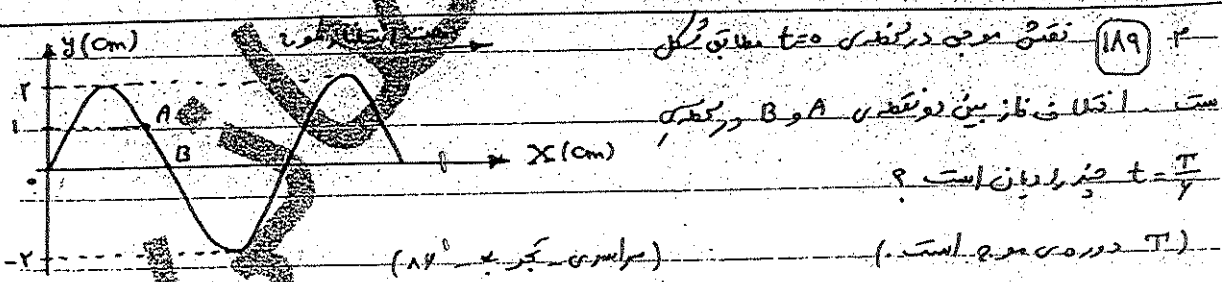 ۱۸۹ نقش موجی در لحظه‌ی t=۰ مطابق شکل
ست. اختلاف فاز بین دو نقطه‌ی A و B در لحظه‌ی
t = T/۲ چند رادیان است ؟
(T دوره‌ی موج است.)
(سراسری تجربی ۸۶)
y(cm)
جهت انتشار موج
۲
۱
A
B
۰
-۲
X(cm)